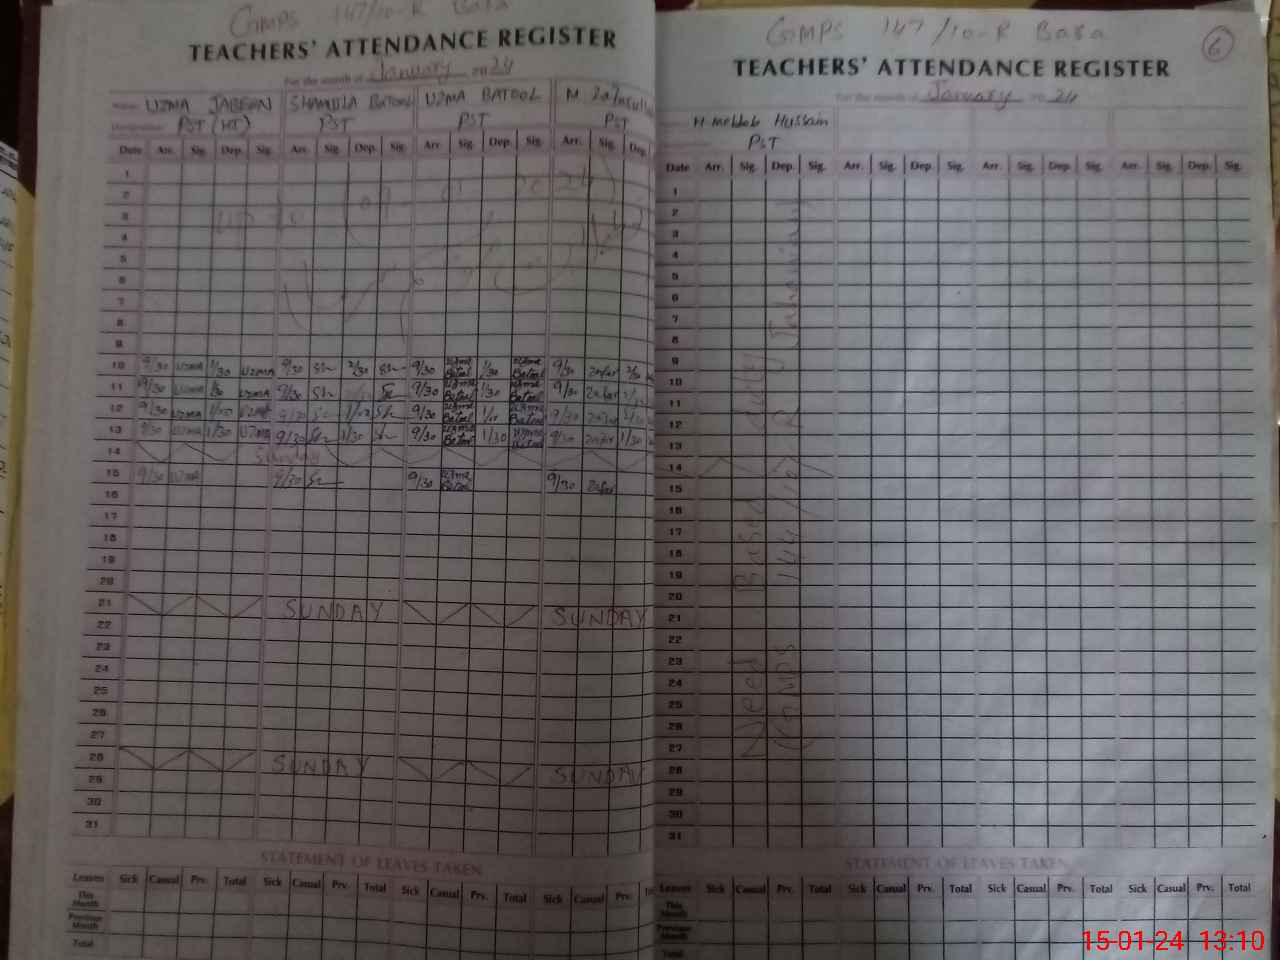 GMPS 147/10-R Basa
TEACHERS' ATTENDANCE REGISTER
For the month of January 2024
Name UZMA JABEEN SHAMILA BATOOL UZMA BATOOL M
Designation PST (HT) PST PST PST
Date Arr. Sig. Dep. Sig. Arr. Sig. Dep. Sig. Arr. Sig. Dep. Sig. Arr. Sig. Dep.
1
2
3
4
5
6
7
8
9
10 9/30 UZMA 1/30 UZMA 9/30 Sh 2/30 Sh 9/30 Uzma Batool 1/30 Uzma Batool 9/30 Zafar 2/30
11 9/30 UZMA 1/30 UZMA 9/30 Sh Sh 9/30 Uzma Batool 1/30 Uzma Batool 9/30 Zafar
12 9/30 UZMA UZMA 9/30 Sh Sh 9/30 Uzma Batool Uzma Batool 9/30 Zafar
13 9/30 UZMA 1/30 UZMA 9/30 Sh 1/30 Sh 9/30 Uzma Batool 1/30 Uzma Batool 9/30 Zafar 1/30
14 Sunday
15 9/30 UZMA 9/30 Sh 9/30 Uzma Batool 9/30 Zafar
16
17
18
19
20
21 SUNDAY SUNDAY
22
23
24
25
26
27
28 SUNDAY SUNDAY
29
30
31
STATEMENT OF LEAVES TAKEN
Leaves Sick Casual Prv. Total Sick Casual Prv. Total Sick Casual Prv. Total Sick Casual Prv.
This Month
Previous Month
Total
GMPS 147/10-R Basa
6
TEACHERS' ATTENDANCE REGISTER
For the month of January 2024
Hussain
PST
Date Arr. Sig. Dep. Sig. Arr. Sig. Dep. Sig. Arr. Sig. Dep. Sig. Arr. Sig. Dep. Sig.
1
2
3
4
5
6
7
8
9
10
11
12
13
14
15
16
17
18
19
20
21
22
23
24
25
26
27
28
29
30
31
Need Based duty
GMPS 144/10 R Jahanian
STATEMENT OF LEAVES TAKEN
Leaves Sick Casual Prv. Total Sick Casual Prv. Total Sick Casual Prv. Total Sick Casual Prv. Total
This Month
Previous Month
Total
15-01-24 13:10